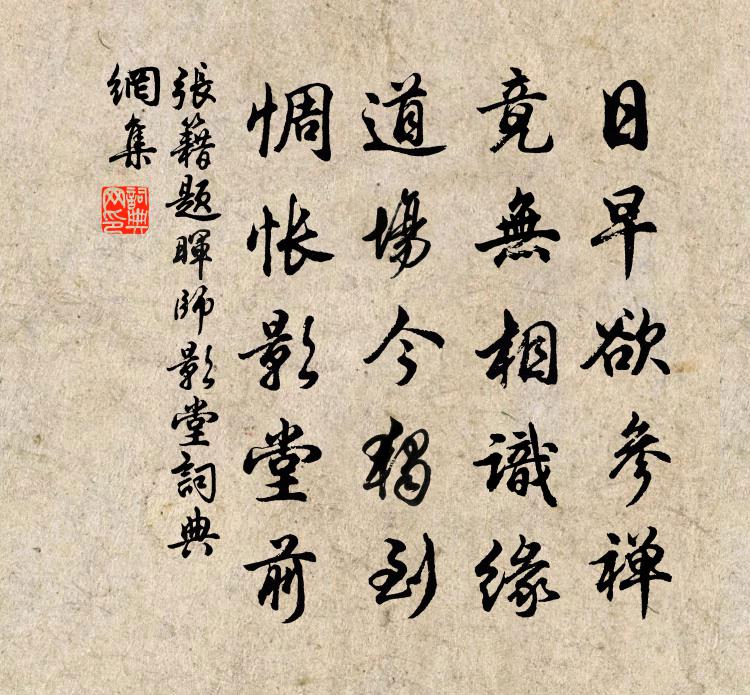 日早欲參禅
竟無相識緣
道場今獨到
惆悵影堂前
張籍題暉師影堂詞典
網集
詞典
网印